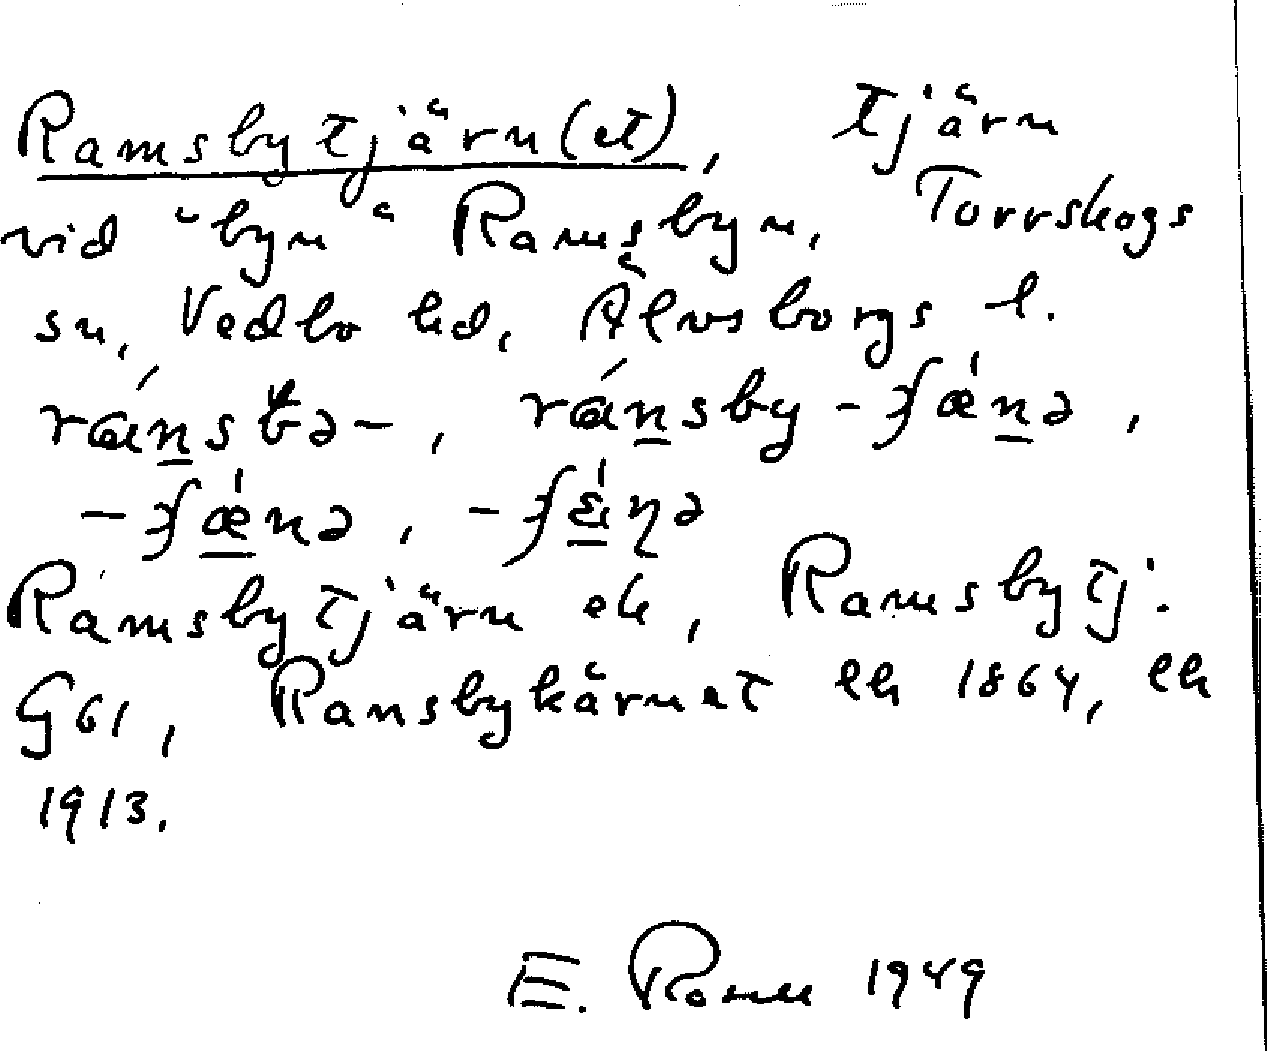 Ramsbytjärn(et), tjärn
vid "byn" Ramsbyn, Torrskogs
sn, Vedbo hd, Älvsborgs l.
rán̲sbə-, rán̲sby-ʒʃǽn̲ə,
-ʒʃǽ̲nə, -ʃɛ̲́ɳə
Ramsbytjärn ek, Ramsbytj.
G61, Ransbykärnet eh 1864, eh
1913.
E. Rosell 1949